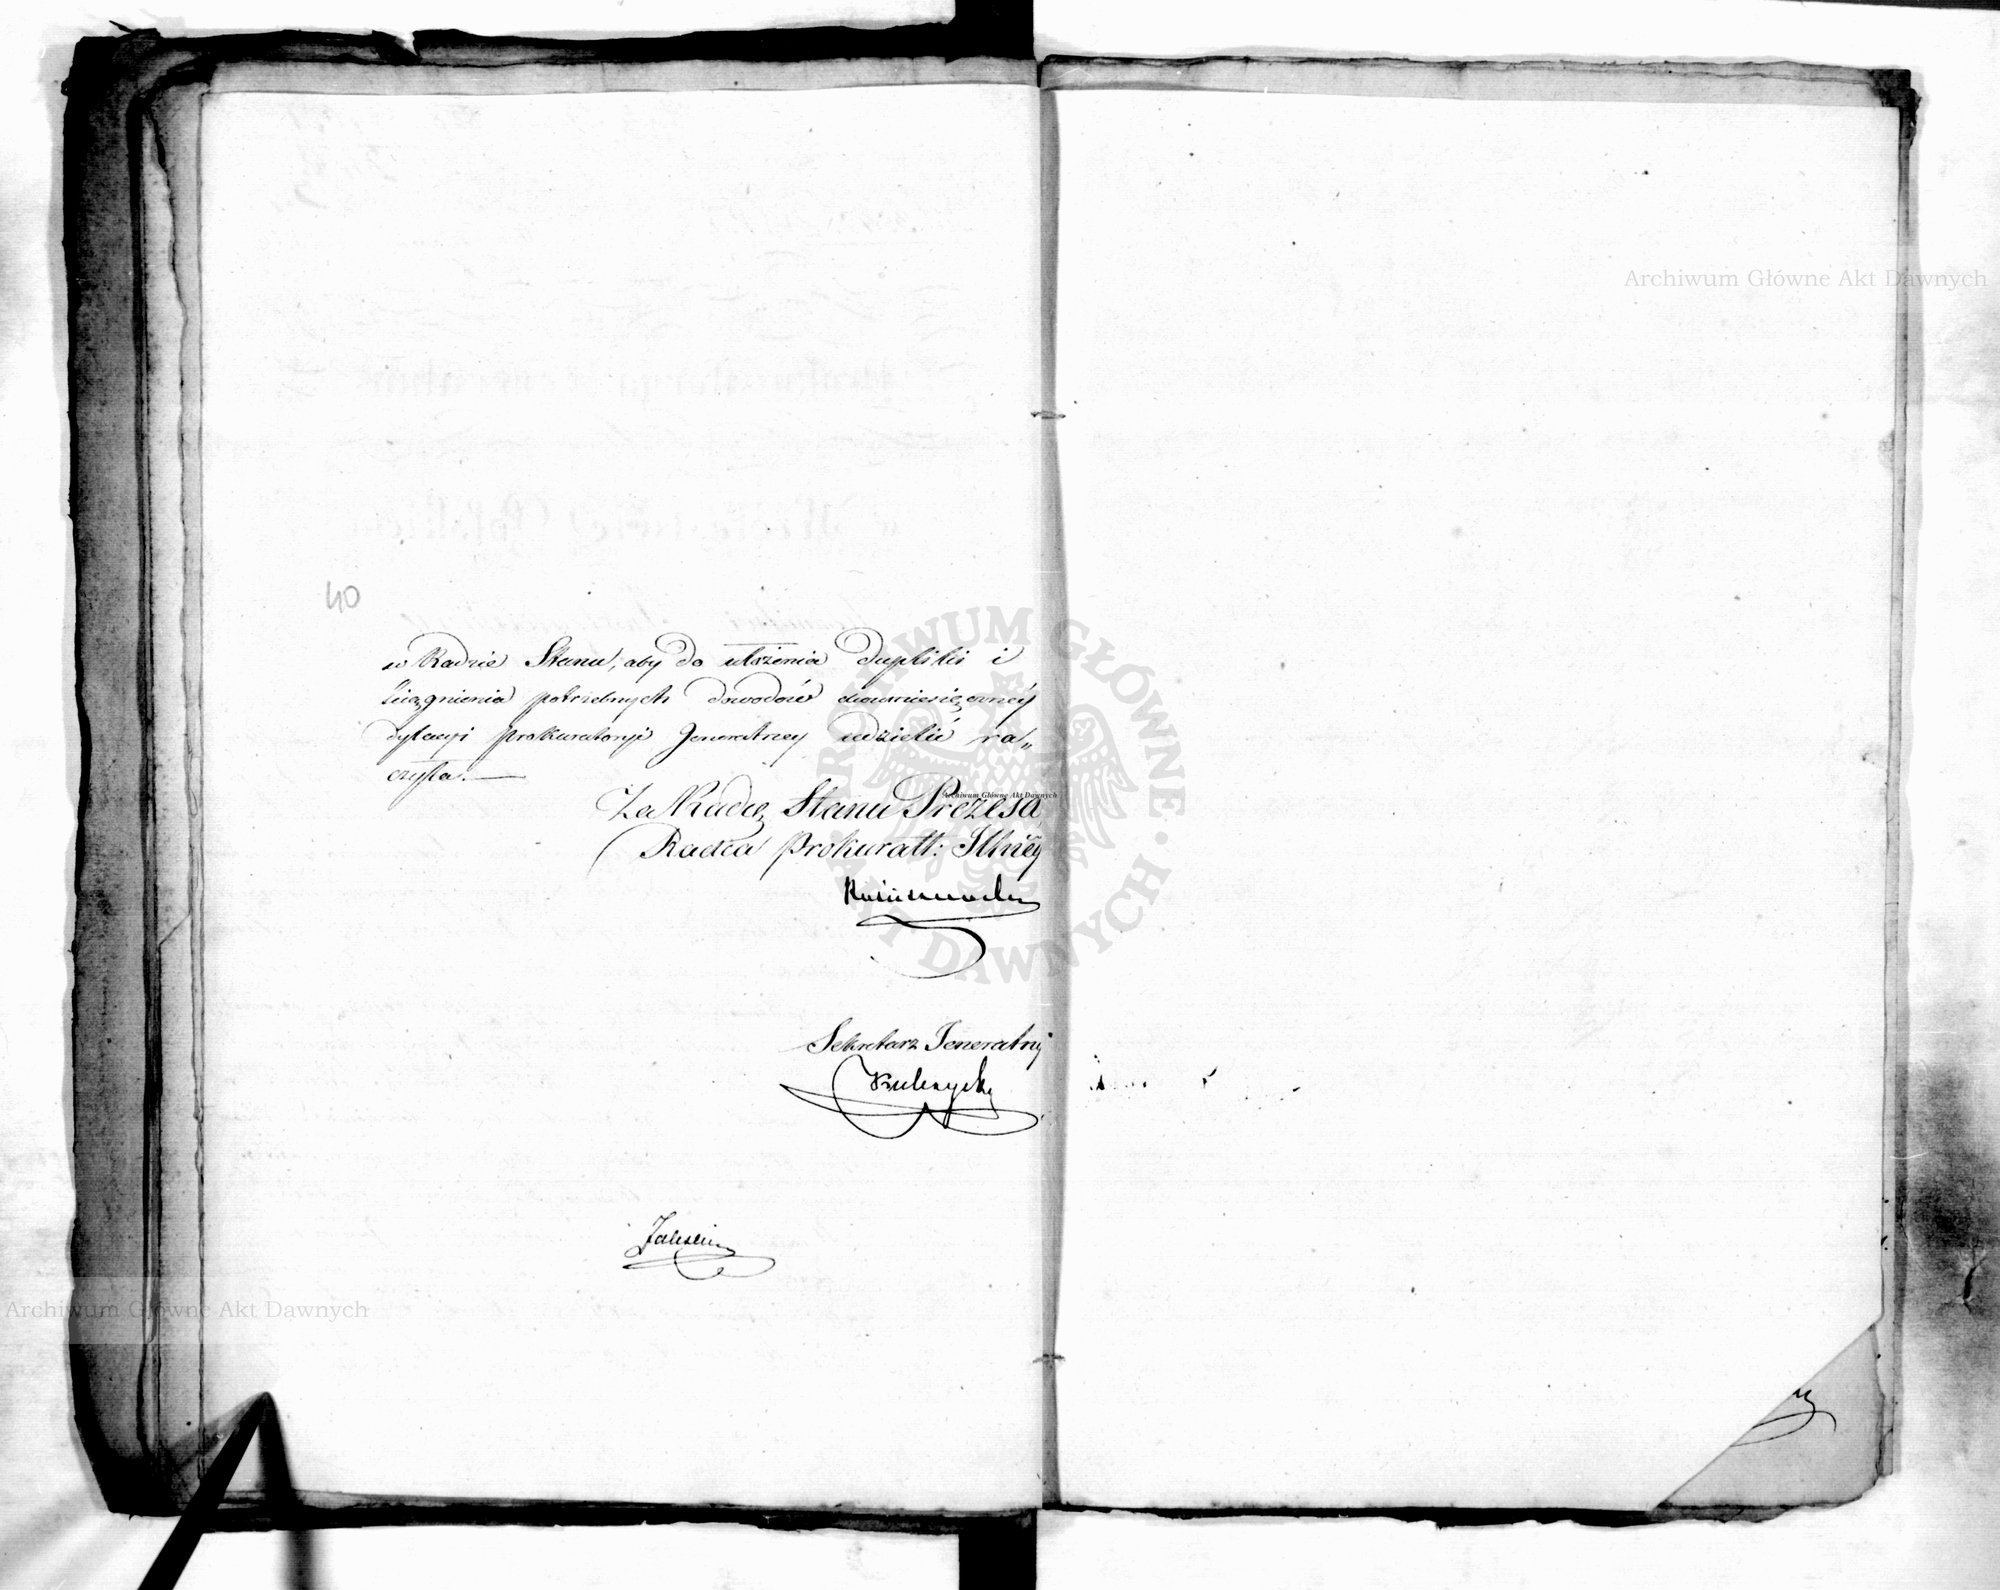 40
w Radzie Stanu, aby do ułożenia Dupliki i
ściągnienia potrzebnych dowodów dwumiesięcznéy
dylacyi Prokuratoryi Jeneralney udzielić ra„
czyła.—
Za Radcę Stanu Prezesa,
Radca Prokuratt: Jlnéy
Sekretarz Jeneralny
Archiwum Główne Akt Dawnych
Archiwum Główne Akt Dawnych
Archiwum Główne Akt Dawnych
ARCHIWUM GŁÓWNE · AKT DAWNYCH ·